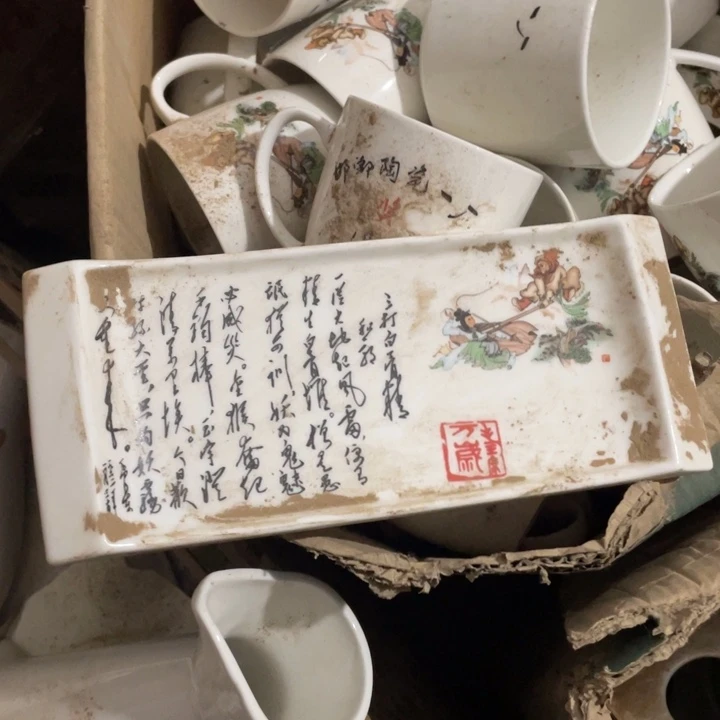 邯鄲陶瓷
三打白骨精
一从大地起风雷，便有
精生白骨堆。僧是愚
氓犹可训，妖为鬼蜮
必成災。金猴奮起
千鈞棒，玉宇澄
清万里埃。今日歡
呼孙大圣，只缘妖霧
又重来。
毛主席
万歲